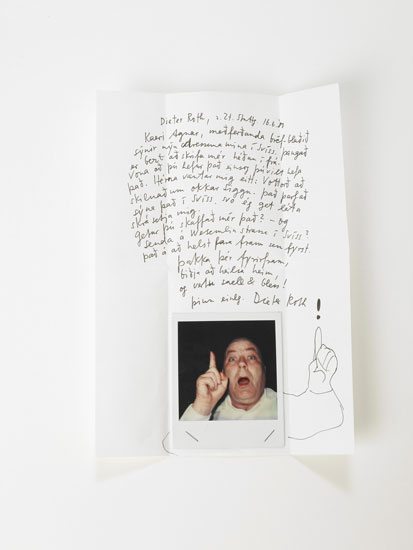 Dieter Roth, z. Zt. Stuttg 16.6.81
Kæri Agnar, meðfarðanda bréf-bleðið
sýnir nýja adressuna mína í Sviss. þangað
er bent að skrifa mér héðan í frá.
Vona að þú hefur það eins og þú vilt hafa
það. Hérna vantar mig eitt: Vottorð að
skilnaðum okkar Siggu. það þarf að
sýna það í Sviss, svo ég get látið
skrásetja mig.
Getur þú skaffað mér það? – og
senda á Wesemlin strasse í Sviss?
það á að helst fara fram sem fyrst
þakka þér fyrirfram,
bið að heilsa heim,
og vertu sæll & bless!
þinn einl. Dieter Roth
!